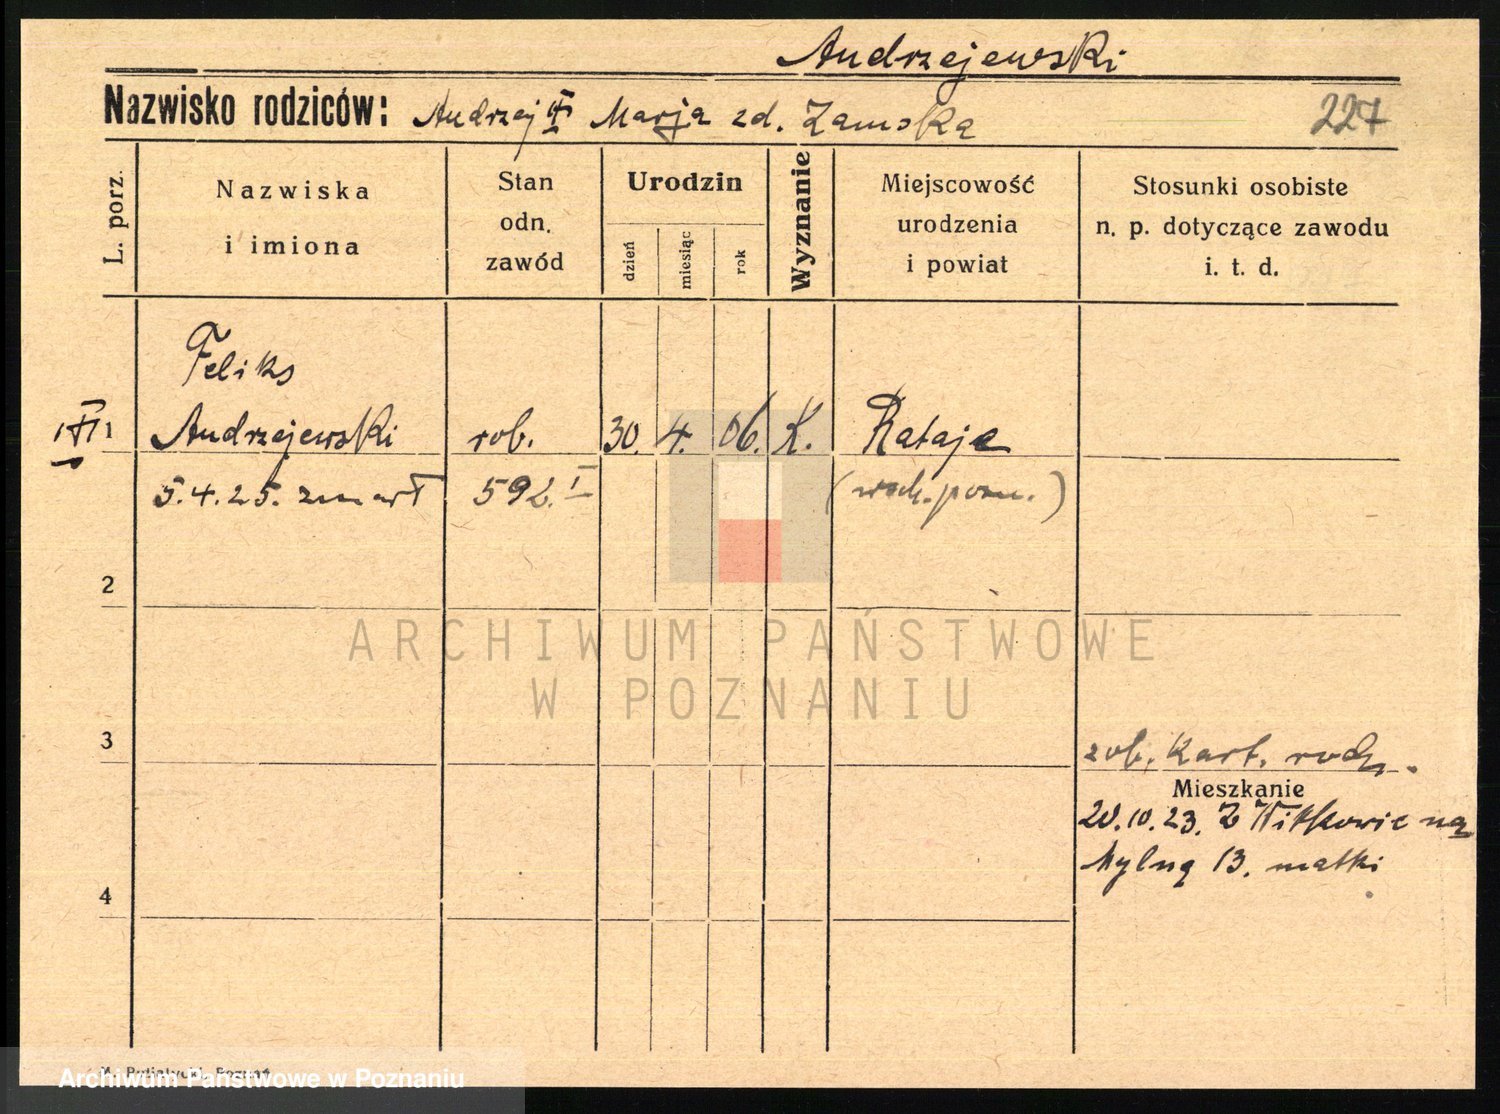 Andrzejewski
Nazwisko rodziców: Andrzej Marja zd. Zamska 227
L. porz.
Nazwiska
i imiona
Stan
odn.
zawód
Urodzin
dzień
miesiąc
rok
Wyznanie
Miejscowość
urodzenia
i powiat
Stosunki osobiste
n. p. dotyczące zawodu
i. t. d.
Feliks
1 Andrzejewski rob. 30. 4. 06. K. Rataje
5.4.25. zmarł 592. I (wsch. pozn.)
2
ARCHIWUM PAŃSTWOWE
W POZNANIU
3
zob. Kart. rodz.
Mieszkanie
20.10.23. Z Witkowic na
Mylną 13. matki
4
Archiwum Państwowe w Poznaniu